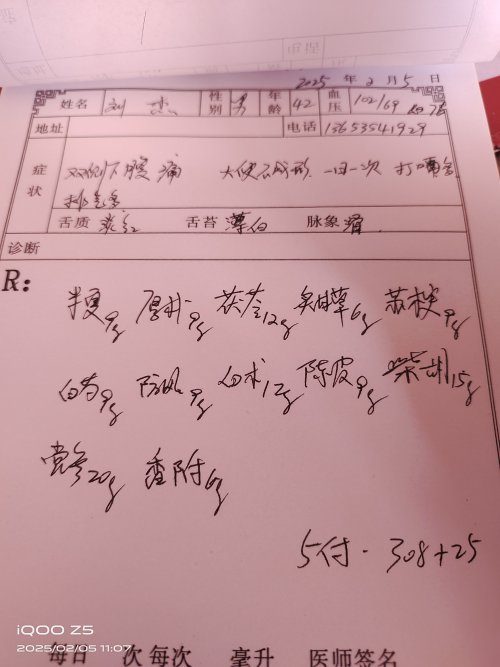 2025 年 2 月 5 日
姓名 刘杰 性别 男 年龄 42 血压 102/69
地址 电话 13653541929
症状 双侧下腹痛 大便不成形 一日一次 打嗝多
排气多
舌质 淡红 舌苔 薄白 脉象 滑
诊断
R:
半夏9g 厚朴9g 茯苓12g 炙甘草6g 苏梗9g
白芍9g 防风9g 白术12g 陈皮9g 柴胡15g
党参20g 香附6g
5付. 308+25
iQOO Z5
2025/02/05 11:07
每日 次每次 毫升 医师签名